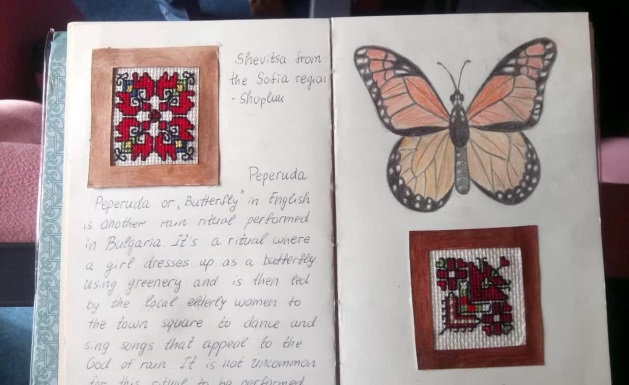 Shevitsa from
the Sofia region
- Shopluk
Peperuda
Peperuda or „Butterfly" in English
is another rain ritual performed
in Bulgaria. It's a ritual where
a girl dresses up as a butterfly
using greenery and is then led
by the local elderly women to
the town square to dance and
sing songs that appeal to the
God of rain. It is not uncommon
for this ritual to be performed